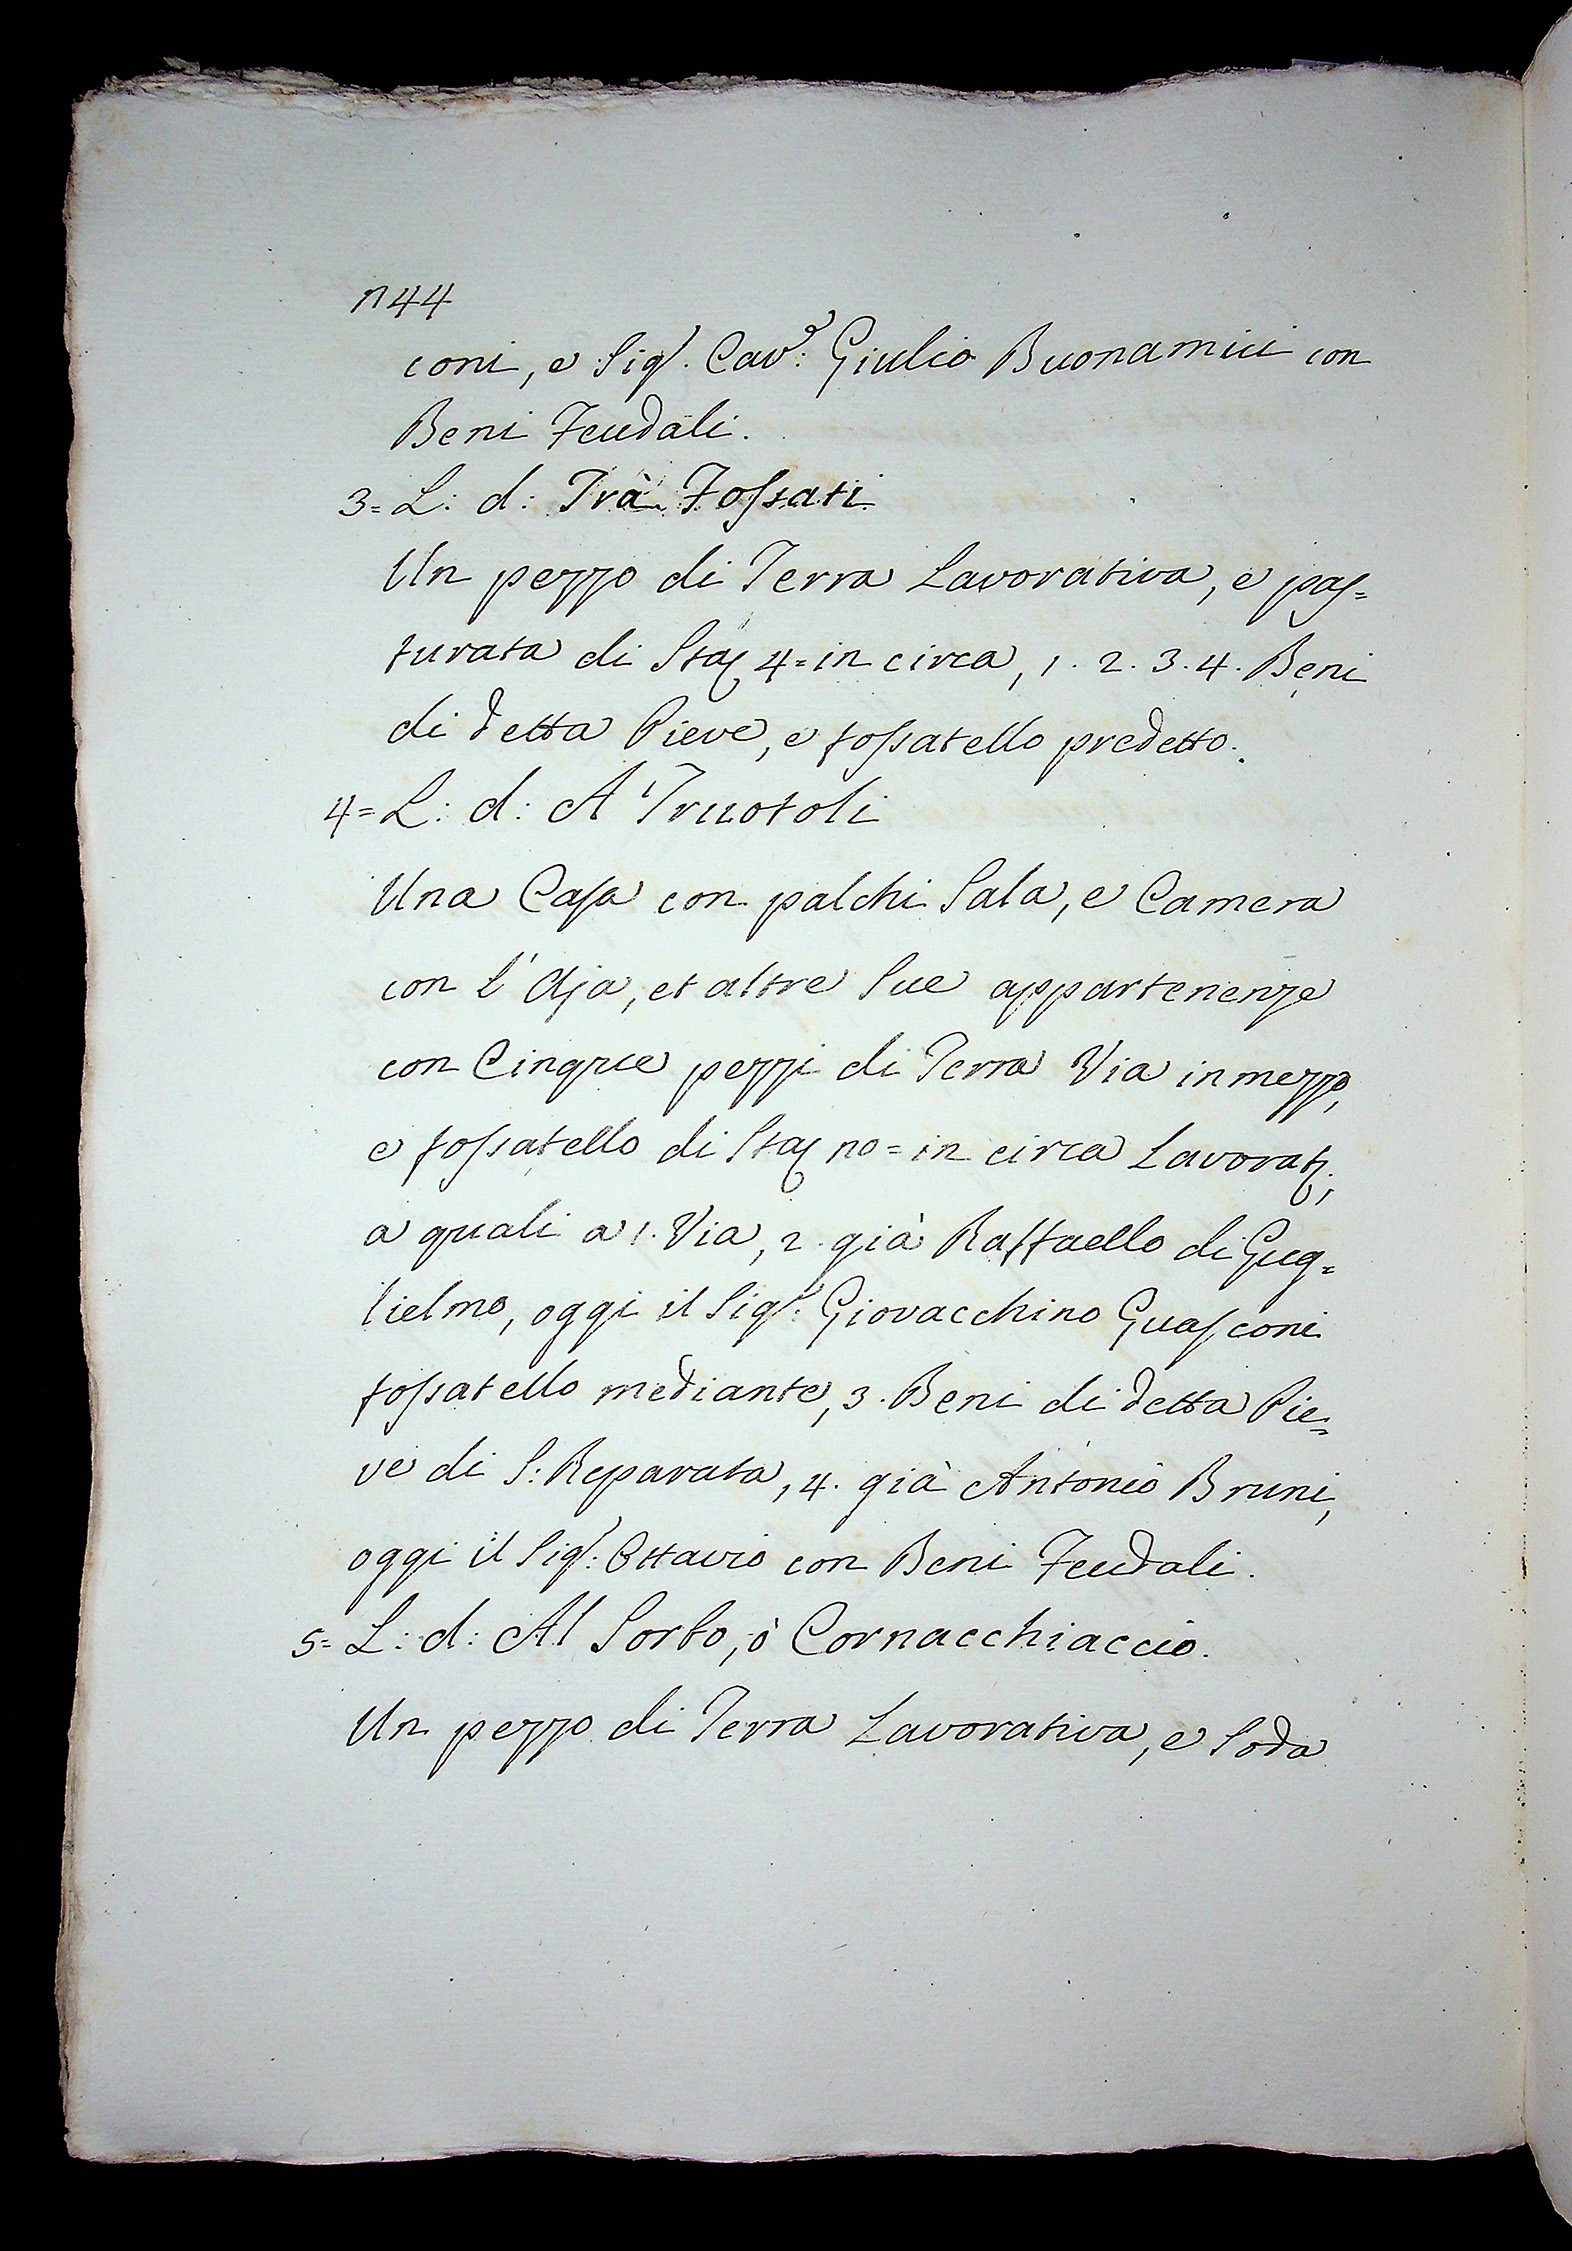 n44
coni, e Sig.r Cav.e: Giulio Buonamici con
Beni Feudali.
3= L: d: Trà Fossati
Un pezzo di Terra Lavorativa, e pas=
turata di Sta 4= in circa, 1. 2. 3. 4. Beni
di detta Pieve, e fossatello predetto.
4= L: d: A Truotoli
Una Casa con palchi Sala, e Camera
con l'Aja, et altre Sue appartenenze
con Cinque pezzi di Terra Via in mezzo,
e fossatello di Sta no= in circa Lavorat;,
a quali a 1. Via, 2. già Raffaello di Gug=
lielmo, oggi il Sig.r: Giovacchino Guasconi
fossatello mediante, 3. Beni di detta Pie=
ve di S: Reparata, 4. già Antonio Bruni,
oggi il Sig.r: Ottavio con Beni Feudali.
5= L: d: Al Sorbo, ò Cornacchiaccio.
Un pezzo di Terra Lavorativa, e Soda